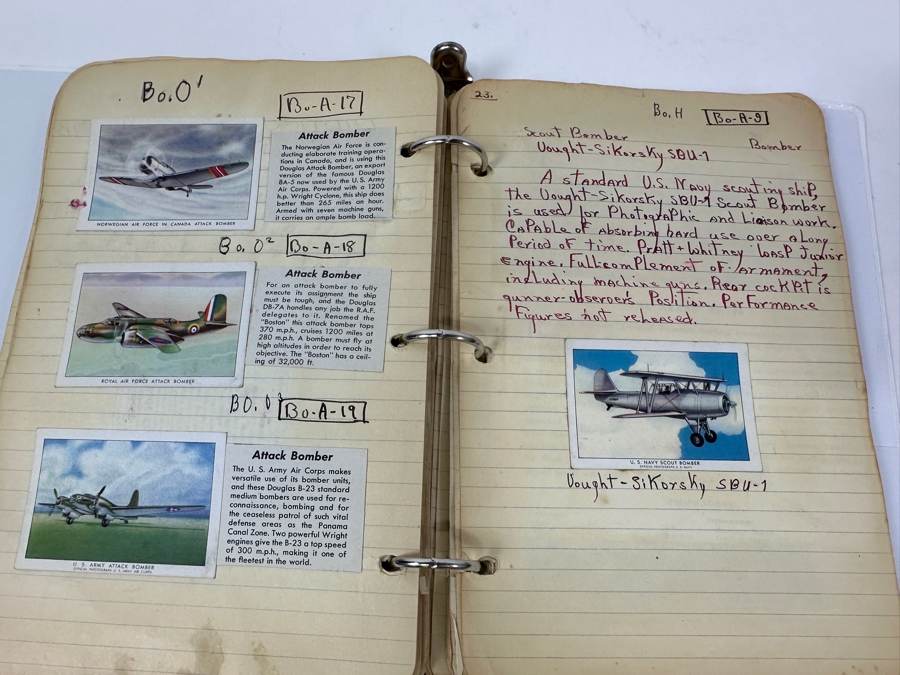 Bo.O'
Bo-A-17
NORWEGIAN AIR FORCE IN CANADA ATTACK BOMBER
Attack Bomber
The Norwegian Air Force is con-
ducting elaborate training opera-
tions in Canada, and is using this
Douglas Attack Bomber, an export
version of the famous Douglas
BA-5 now used by the U.S. Army
Air Corps. Powered with a 1200
h.p. Wright Cyclone, this ship does
better than 265 miles an hour.
Armed with seven machine guns,
it carries an ample bomb load.
Bo.O²
Bo-A-18
ROYAL AIR FORCE ATTACK BOMBER
Attack Bomber
For an attack bomber to fully
execute its assignment the ship
must be tough, and the Douglas
DB-7A handles any job the R.A.F.
delegates to it. Renamed the
"Boston" this attack bomber tops
370 m.p.h., cruises 1200 miles at
280 m.p.h. A bomber must fly at
high altitudes in order to reach its
objective. The "Boston" has a ceil-
ing of 32,000 ft.
Bo.O
Bo-A-19
U. S. ARMY ATTACK BOMBER
OFFICIAL PHOTOGRAPH U. S. ARMY AIR CORPS
Attack Bomber
The U. S. Army Air Corps makes
versatile use of its bomber units,
and these Douglas B-23 standard
medium bombers are used for re-
connaissance, bombing and for
the ceaseless patrol of such vital
defense areas as the Panama
Canal Zone. Two powerful Wright
engines give the B-23 a top speed
of 300 m.p.h., making it one of
the fleetest in the world.
23.
Bo.H
Bo-A-9
Scout Bomber
Bomber
Vought-Sikorsky SBU-1
A standard U.S. Navy scouting ship,
the Vought-Sikorsky SBU-1 Scout Bomber
is used for Photographic and Liaison work.
Capable of absorbing hard use over a Long
Period of time. Pratt + Whitney Wasp Junior
engine. Full complement of armament,
including machine guns. Rear cockpit is
gunner-observers Position. Performance
Figures not released.
U. S. NAVY SCOUT BOMBER
OFFICIAL PHOTOGRAPH U. S. NAVY
Vought-Sikorsky SBU-1